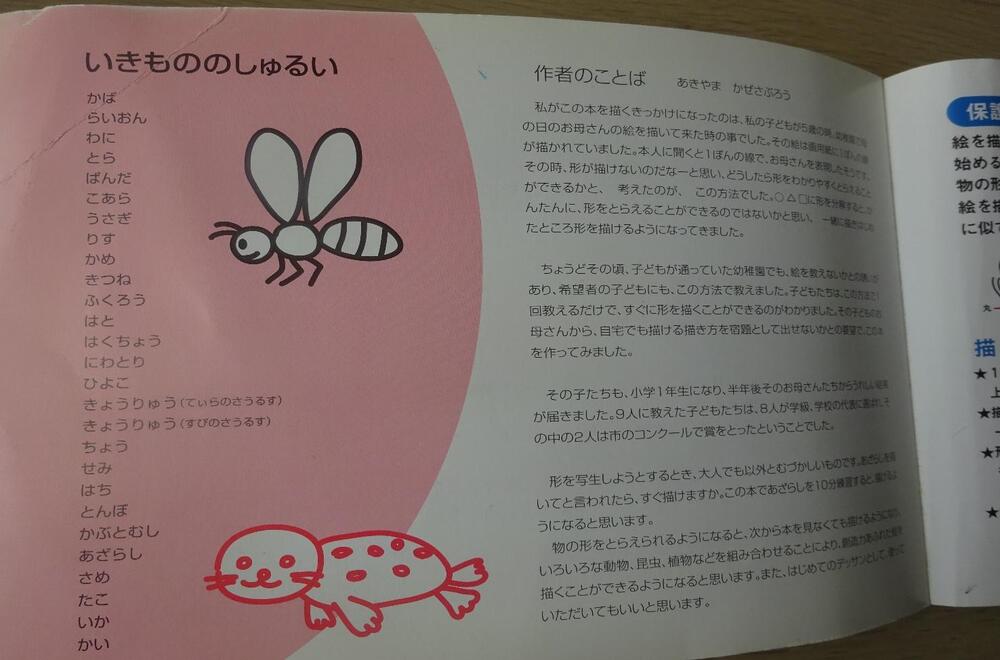 いきもののしゅるい
かば
らいおん
わに
とら
ぱんだ
こあら
うさぎ
りす
かめ
きつね
ふくろう
はと
はくちょう
にわとり
ひよこ
きょうりゅう(てぃらのさうるす)
きょうりゅう(すぴのさうるす)
ちょう
せみ
はち
とんぼ
かぶとむし
あざらし
さめ
たこ
いか
かい
作者のことば　あきやま　かぜさぶろう
私がこの本を描くきっかけになったのは、私の子どもが5歳の時、幼稚園で母
の日のお母さんの絵を描いて来た時の事でした。その絵は画用紙に1ぽんの線
が描かれていました。本人に聞くと1ぽんの線で、お母さんを表現したそうです。
その時、形が描けないのだなーと思い、どうしたら形をわかりやすくとらえること
ができるかと、 考えたのが、 この方法でした。○△□に形を分解すると、か
んたんに、形をとらえることができるのではないかと思い、 一緒に描きはじめ
たところ形を描けるようになってきました。
ちょうどその頃、子どもが通っていた幼稚園でも、絵を教えないかとの誘いが
あり、希望者の子どもにも、この方法で教えました。子どもたちは、この方法で1
回教えるだけで、すぐに形を描くことができるのがわかりました。その子どものお
母さんから、自宅でも描ける描き方を宿題として出せないかとの要望で、この本
を作ってみました。
その子たちも、小学1年生になり、半年後そのお母さんたちからうれしい
が届きました。9人に教えた子どもたちは、8人が学級、学校の代表に選ばれ、そ
の中の2人は市のコンクールで賞をとったということでした。
形を写生しようとするとき、大人でも以外とむづかしいものです。あざらしを描
いてと言われたら、すぐ描けますか。この本であざらしを10分練習すると、描けるよ
うになると思います。
物の形をとらえられるようになると、次から本を見なくても描けるようになり、
いろいろな動物、昆虫、植物などを組み合わせることにより、創造力あふれた絵を
描くことができるようになると思います。また、はじめてのデッサンとして、使って
いただいてもいいと思います。
保護
絵を描
始める
物の形
絵を描
に似て
丸一
描
★1
上
★描
★形
★